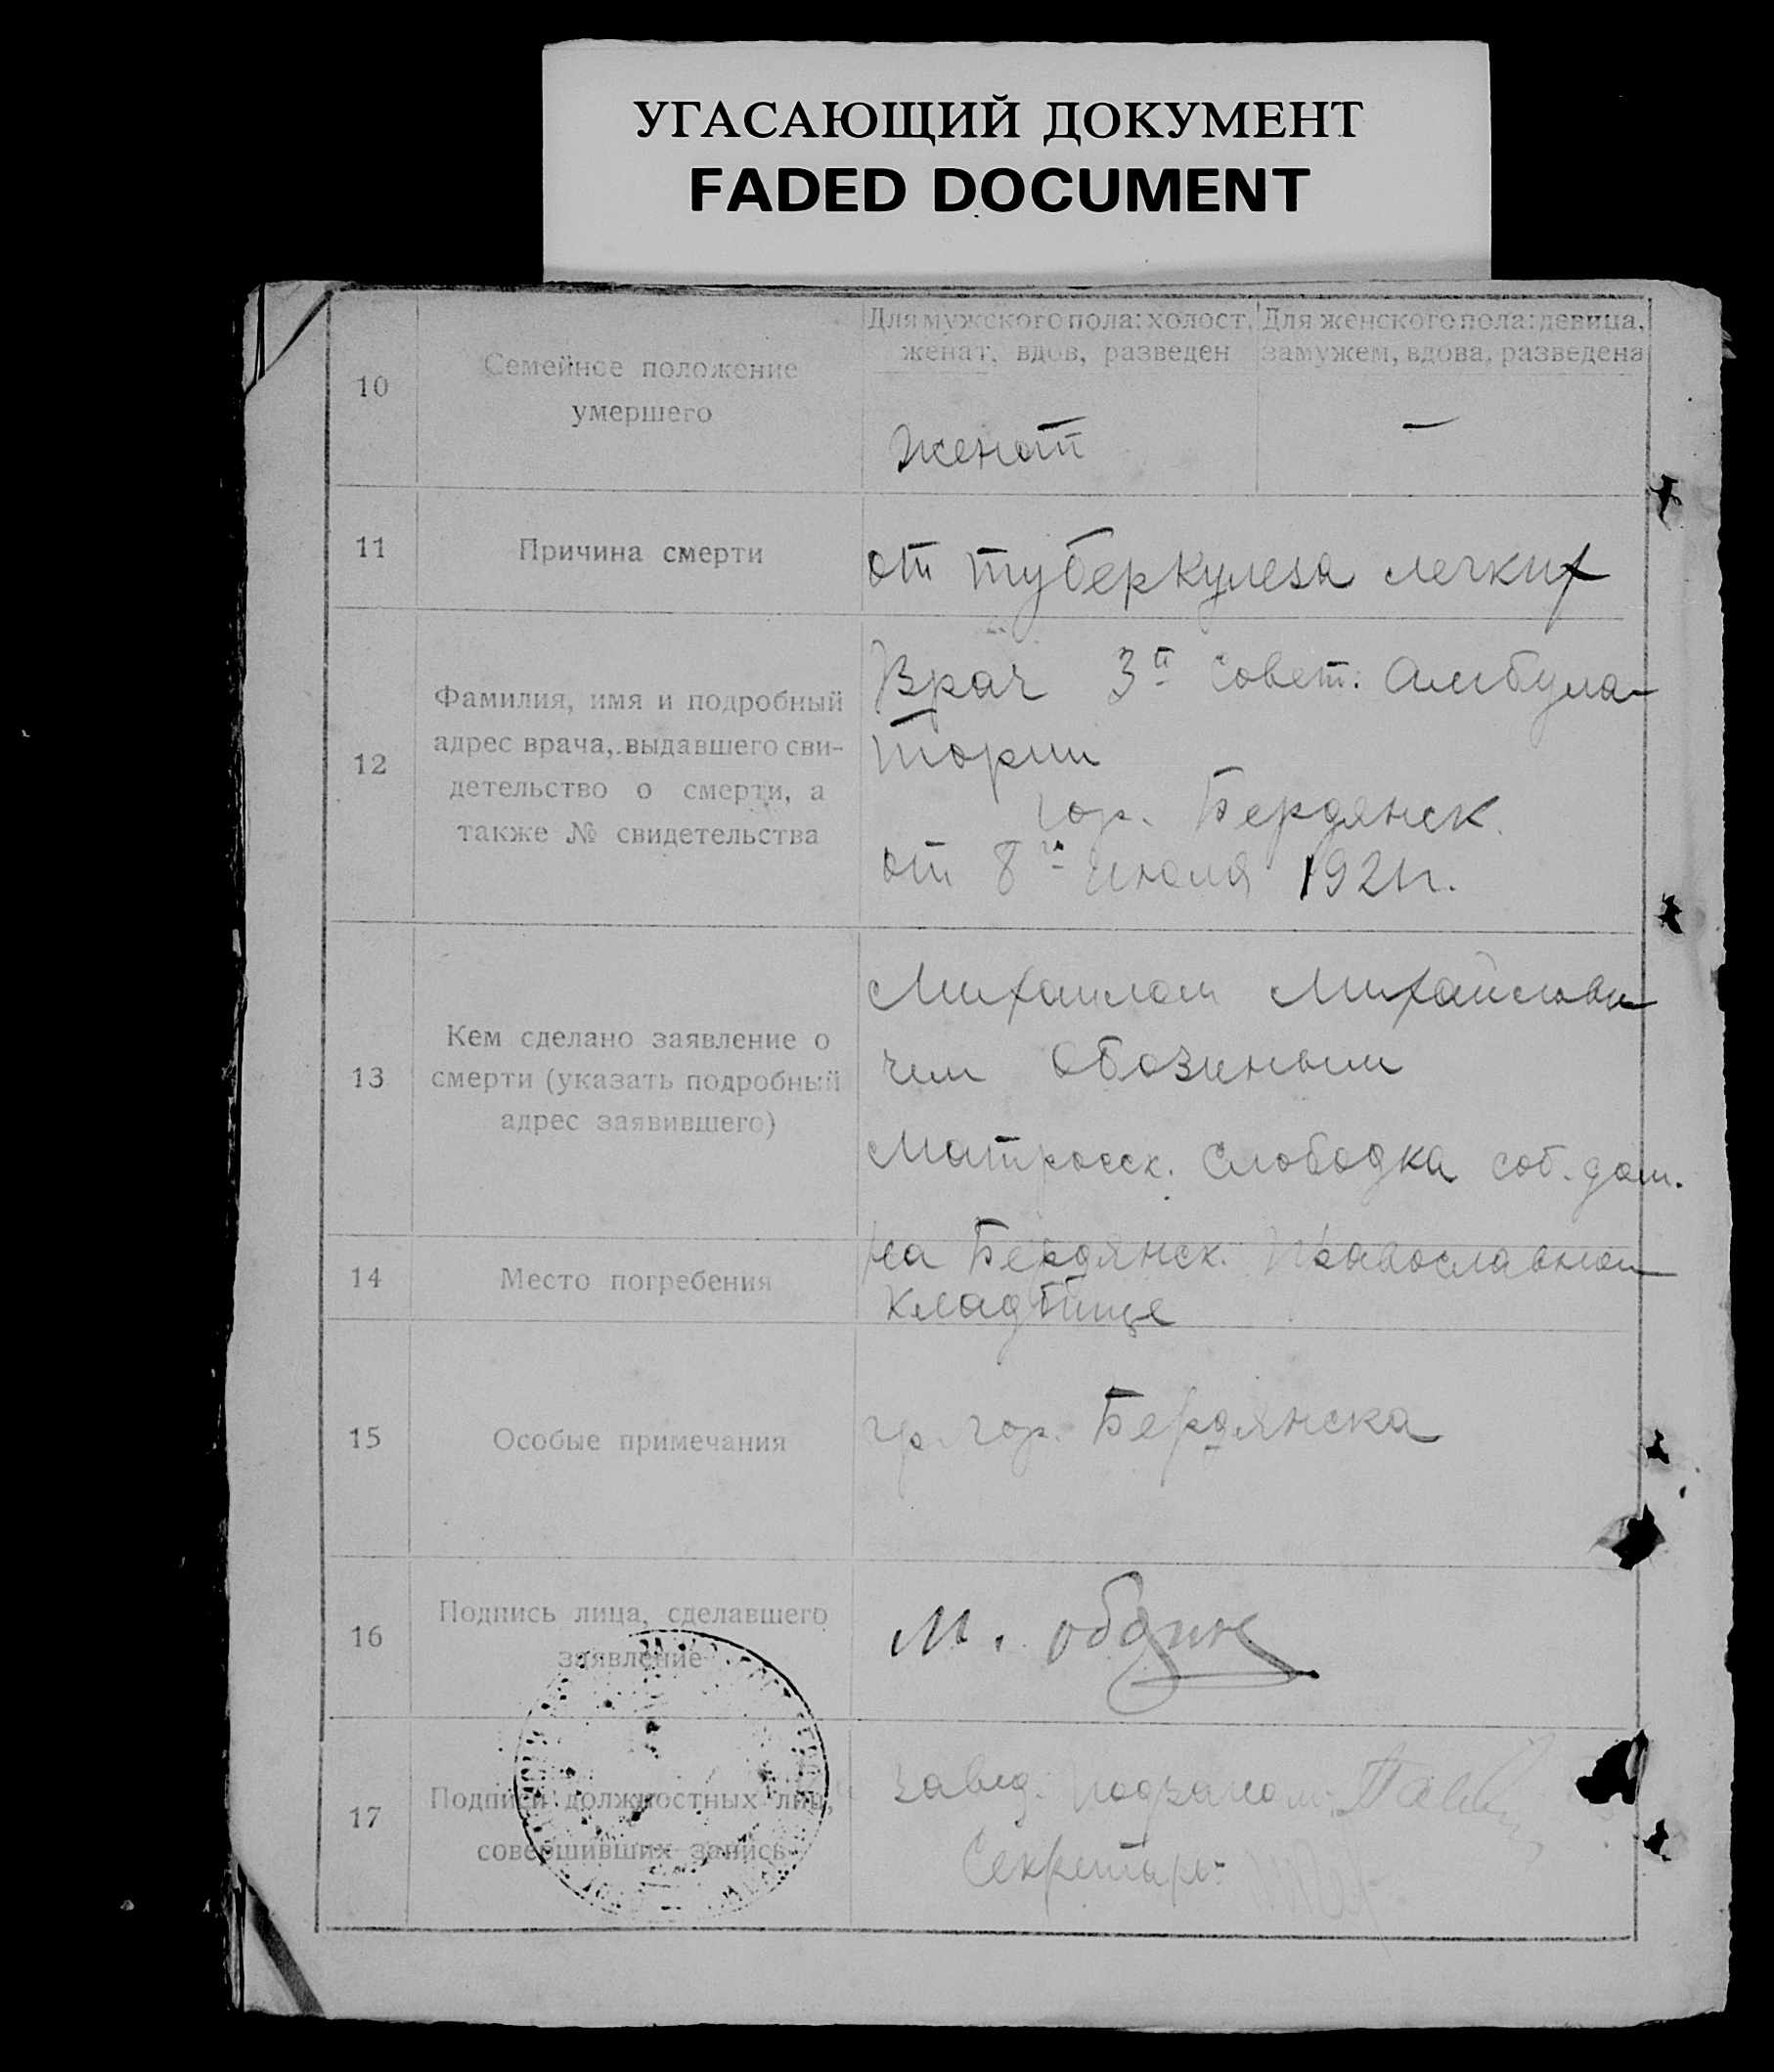 УГАСАЮЩИЙ ДОКУМЕНТ
FADED DOCUMENT
10
Семейное положение
умершего
Для мужского пола: холост,
женат, вдов, разведен
Для женского пола: девица,
замужем, вдова, разведена
Женат
—
11
Причина смерти
от туберкулеза легких
12
Фамилия, имя и подробный
адрес врача, выдавшего сви-
детельство о смерти, а
также № свидетельства
Врач 3й Совет. Амбула-
тории
гор. Бердянск.
от 8го Июля 1921г.
13
Кем сделано заявление о
смерти (указать подробный
адрес заявившего)
Михаилом Михайлови
чем Обозиным
Матросск. Слободка соб. дом.
14
Место погребения
на Бердянск. Православном
Кладбище
15
Особые примечания
гр. гор. Бердянска
16
Подпись лица, сделавшего
заявление
М.
17
Подписи должностных лиц,
совершивших запись
Завед.
Секретарь